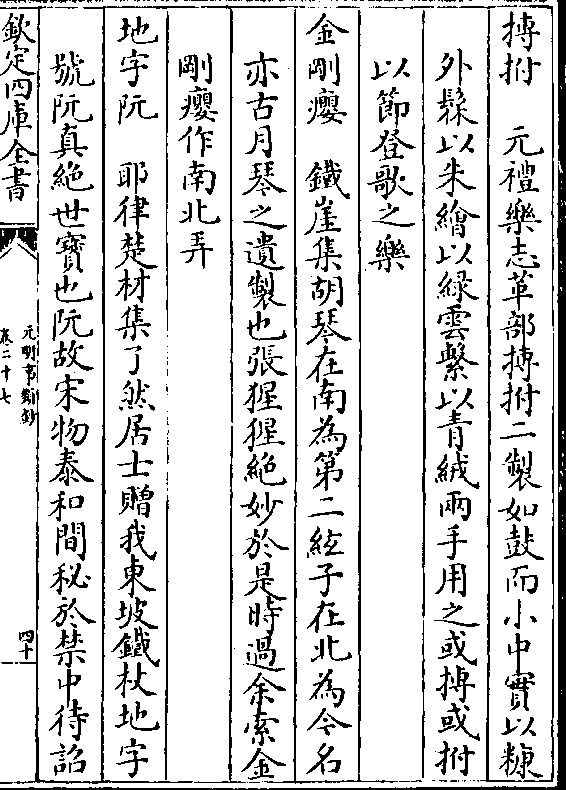 搏拊　元禮樂志革部搏拊二製如鼓而小中實以糠
外髹以朱繪以綠雲繫以青絨兩手用之或搏或拊
以節登歌之樂
金剛癭　鐵崖集胡琴在南為第二絃子在北為今名
亦古月琴之遺製也張猩猩絶妙於是時過余索金
剛癭作南北弄
地字阮　耶律楚材集了然居士贈我東坡鐵杖地字
號阮真絶世寶也阮故宋物泰和間秘於禁中待詔
欽定四庫全書
元明事類鈔
卷二十七
四十